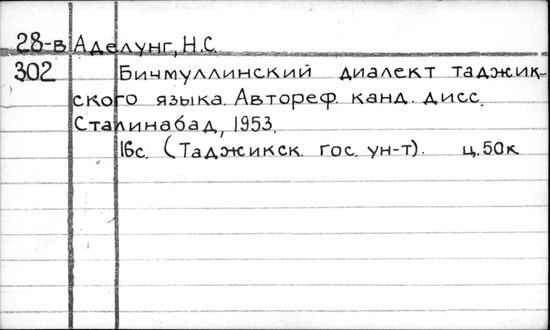 28-в Аделунг, Н.С.
302 Бичмуллинский диалект таджик-
ского языка. Автореф. канд. дисс.
Сталинабад, 1953.
16с. (Таджикск. гос. ун-т). ц.50к